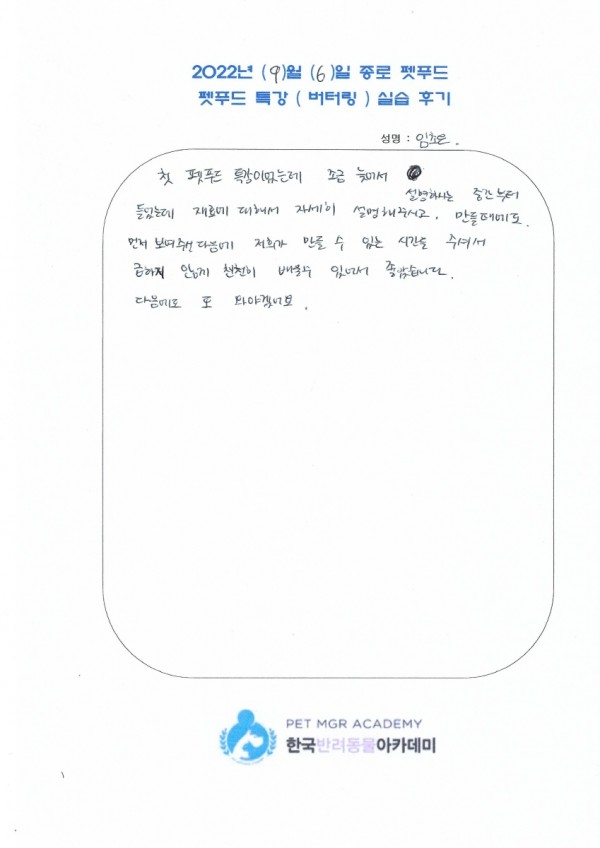 2022년 (9)월 (6)일 종로 펫푸드
펫푸드 특강 ( 버터링 ) 실습 후기
성명 : 임초은.
첫 펫푸드 특강이었는데 조금 늦어서 설명하시는 중간부터
들었는데 재료에 대해서 자세히 설명해주시고. 만들때에도.
먼저 보여주신 다음에 저희가 만들 수 있는 시간을 주셔서
급하지 않게 천천히 배울수 있어서 좋았습니다.
다음에도 또 와야겠어요.
PET MGR ACADEMY
한국반려동물아카데미